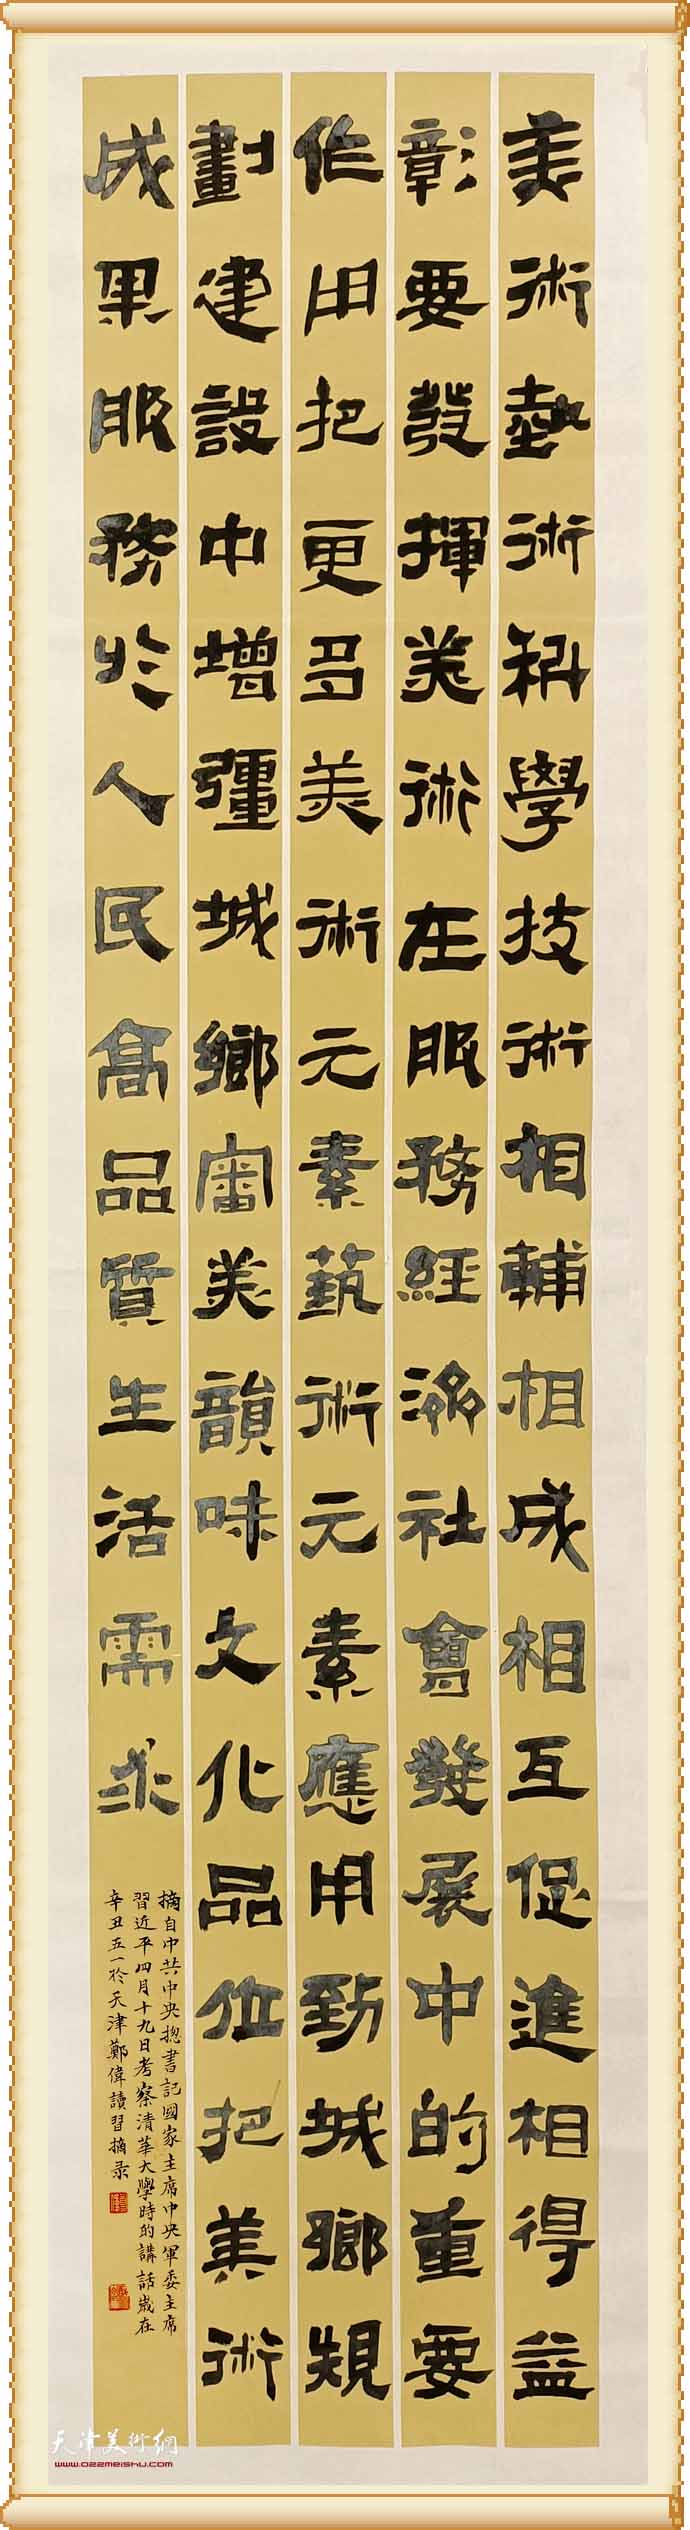 美術藝術科學技術相輔相成相互促進相得益
彰要發揮美術在服務經濟社會發展中的重要
作用把更多美術元素藝術元素應用到城鄉規
劃建設中增彊城鄉審美韻味文化品位把美術
成果服務於人民高品質生活需求
摘自中共中央揔書記國家主席中央軍委主席
習近平四月十九日考察清華大學時的講話歲在
辛丑五一於天津鄭偉讀習摘录
天津美術網
www.022meishu.com